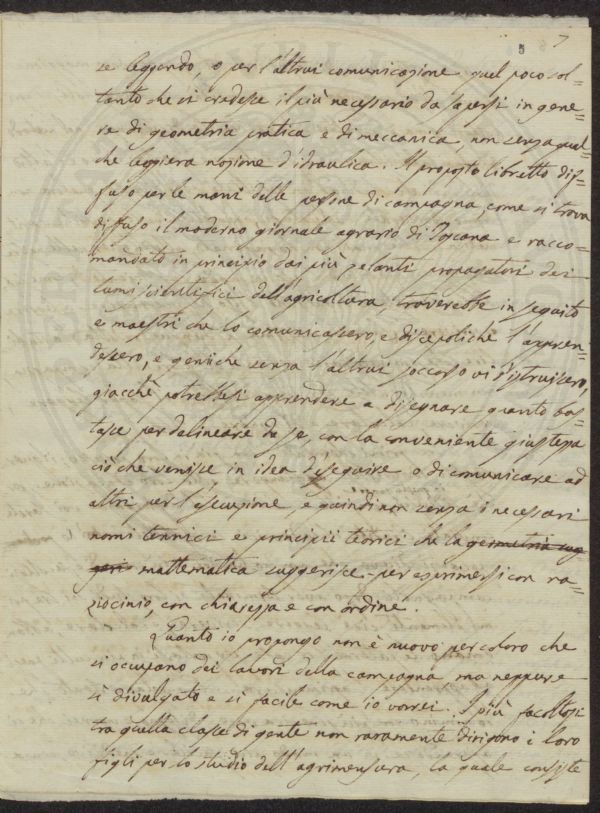 5 7
se leggendo, o per l'altrui comunicazione quel poco sol=
tanto che si credesse il più necessario da sapersi in gene=
re di geometria pratica e di meccanica, non senza qual=
che leggiera nozione d'idraulica. Il proposto libretto dif=
fuso per le mani delle persone di campagna, come si trova
diffuso il moderno giornale agrario di Toscana e racco=
mandato in principio dai più zelanti propagatori dei
lumi scientifici dell'agricoltura, troverebbe in seguito
e maestri che lo comunicassero, e discepoli che l'appren=
dessero, e genii che senza l'altrui soccorso vi s'istruissero,
giacchè potrebbesi apprendere a disegnare quanto bas=
tasse per delineare da se, con la conveniente giustezza
ciò che venisse in idea d'eseguire o di comunicare ad
altri per l'esecuzione e quindi non senza i necessari
nomi tennici e principii teorici che la geometria sug=
geri= mattematica suggerisce per esprimersi con ra=
ziocinio, con chiarezza e con ordine.
Quanto io propongo non è nuovo per coloro che
si occupano dei lavori della campagna, ma neppure
sì divulgato e sì facile come io vorrei. I più facoltosi
tra quella classe di gente non raramente dirigono i loro
figli per lo studio dell'agrimensura, la quale consiste